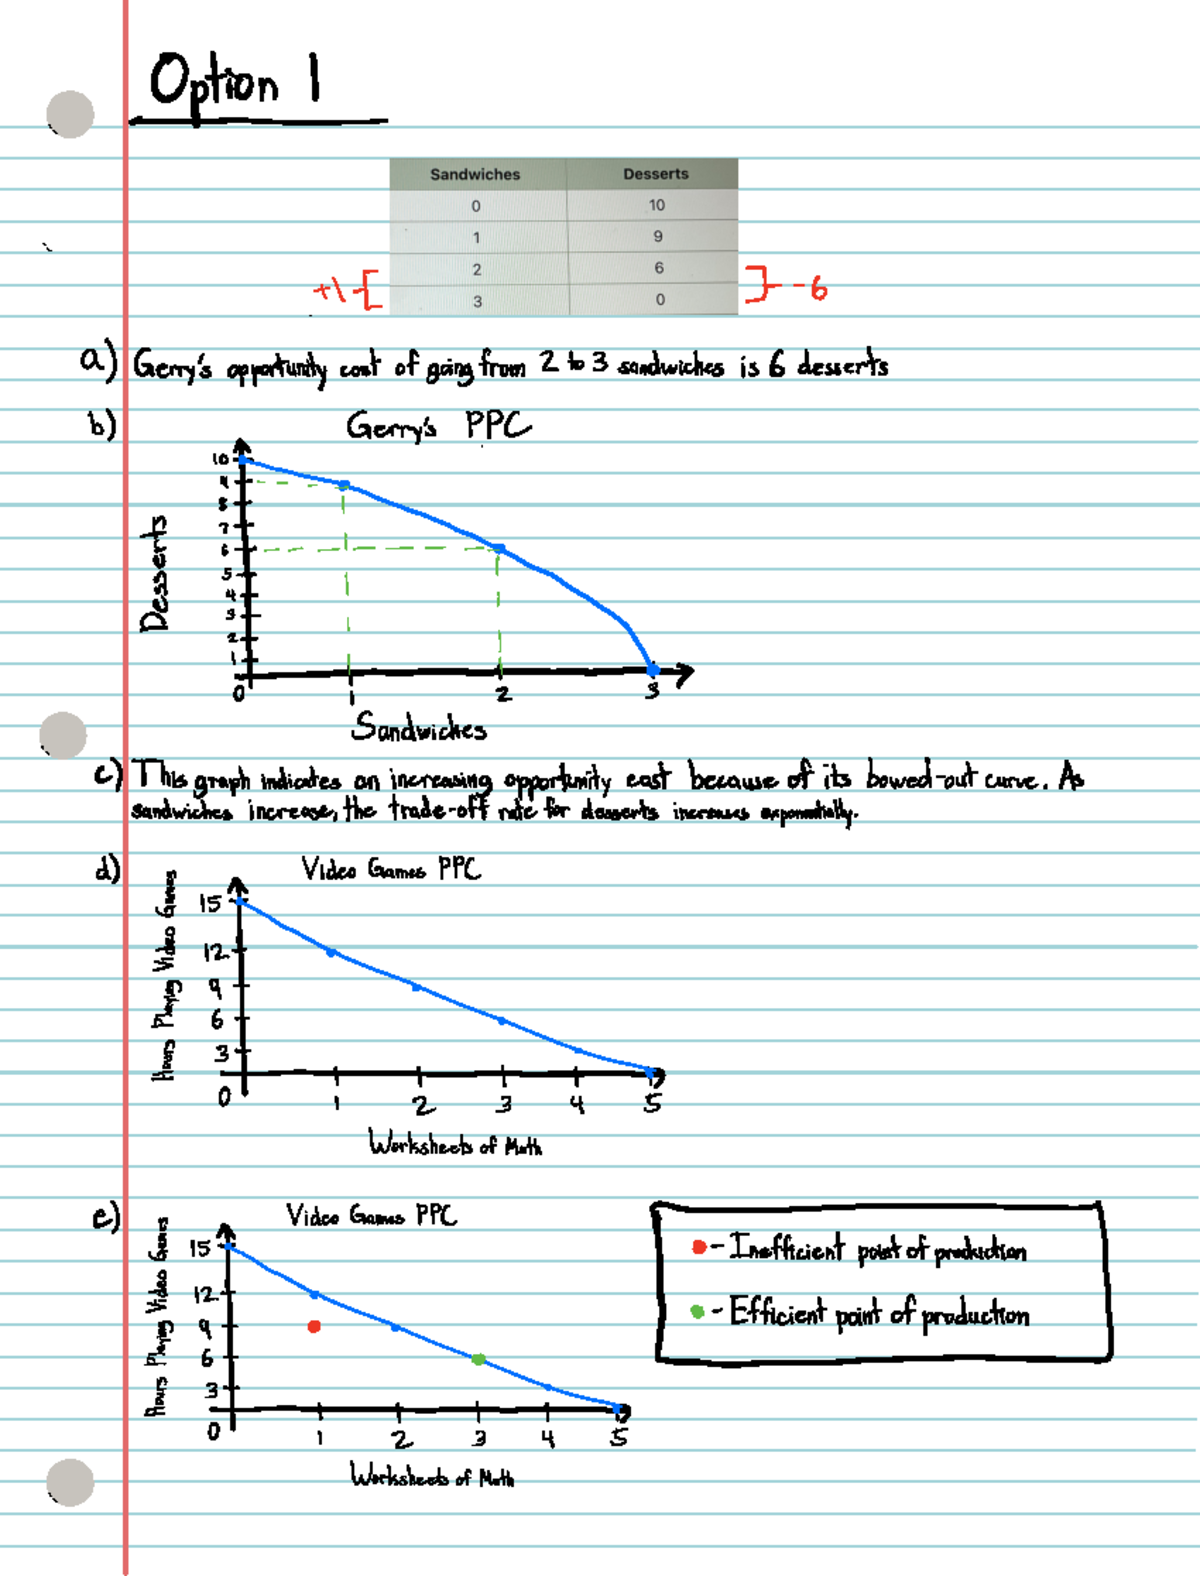 Option 1
Sandwiches Desserts
0 10
1 9
2 6
3 0
+1 -6
a) Gerry's opportunity cost of going from 2 to 3 sandwiches is 6 desserts
b) Gerry's PPC
10
9
8
7
6
5
4
3
2
1
Desserts
0 1 2 3
Sandwiches
c) This graph indicates an increasing opportunity cost because of its bowed-out curve. As
sandwiches increase, the trade-off rate for desserts increases exponentially.
d) Video Games PPC
15
12
9
6
3
Hours Playing Video Games
0 1 2 3 4 5
Worksheets of Math
e) Video Games PPC
15
12
9
6
3
Hours Playing Video Games
0 1 2 3 4 5
Worksheets of Math
- Inefficient point of production
- Efficient point of production